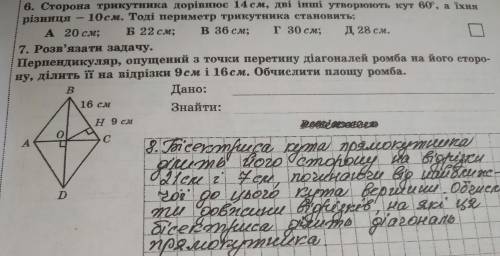 6. Сторона трикутника дорівнює 14 см, дві інші утворюють кут 60°, а їхня
різниця — 10 см. Тоді периметр трикутника становить:
А 20 см; Б 22 см; В 36 см; Г 30 см; Д 28 см.
7. Розв'язати задачу.
Перпендикуляр, опущений з точки перетину діагоналей ромба на його сторо-
ну, ділить її на відрізки 9 см і 16 см. Обчислити площу ромба.
Дано:
Знайти:
B
16 см
H 9 см
O
A
C
D
8. Бісектриса кута прямокутника
ділить його сторону на відрізки
21см і 7см, починаючи від найближ-
чої до цього кута вершини. Обчисли
ти довжини відрізків на які ця
бісектриса ділить діагональ
прямокутника.